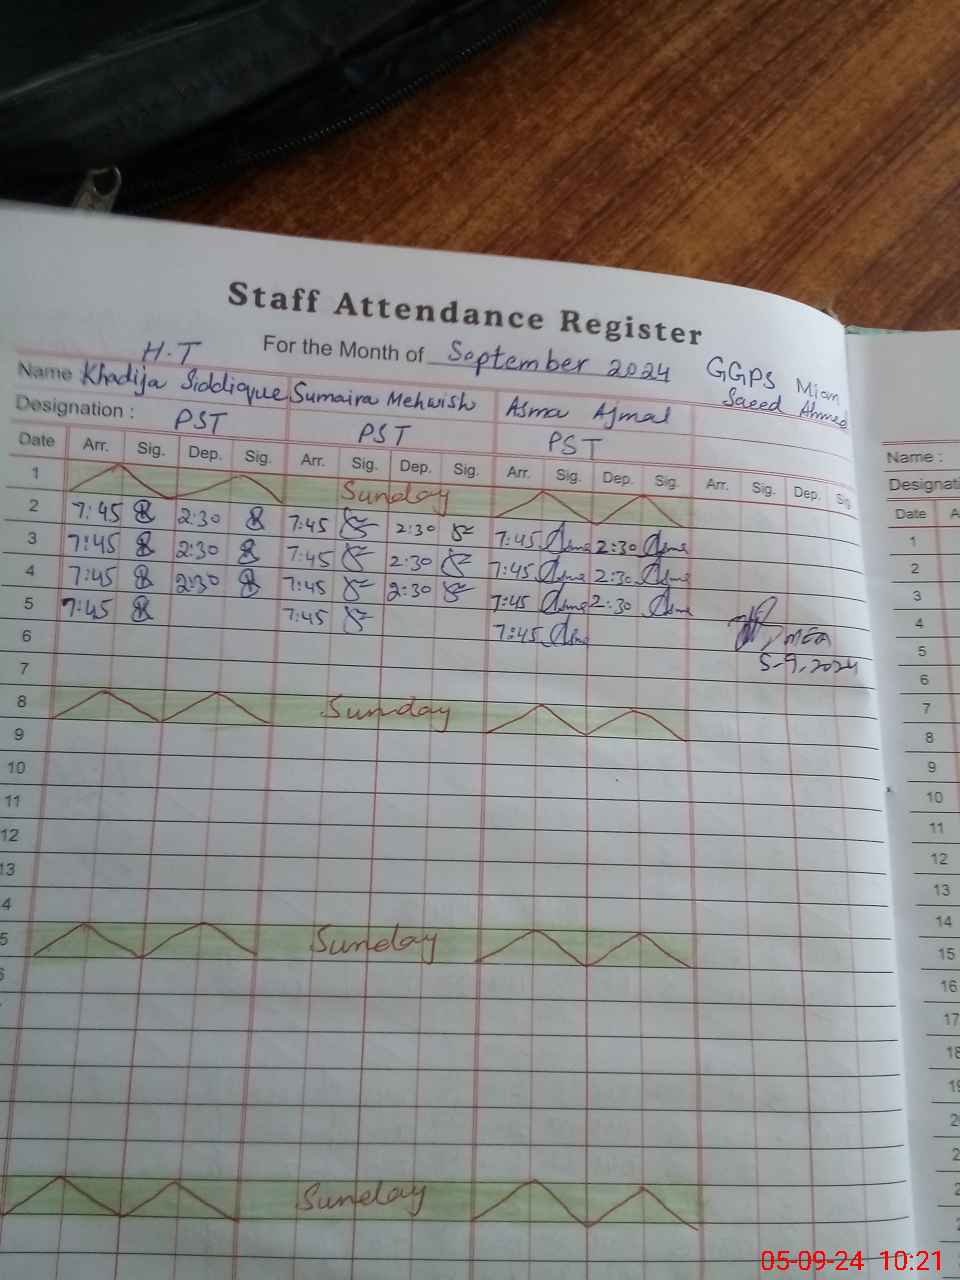 Staff Attendance Register
For the Month of September 2024 GGPS Mian
Saeed Ahmed
H.T
Name Khadija Siddique Sumaira Mehwish Asma Ajmal
Designation : PST PST PST
Date Arr. Sig. Dep. Sig. Arr. Sig. Dep. Sig. Arr. Sig. Dep. Sig. Arr. Sig. Dep. Sig.
1 Sunday
2 7:45 2:30 7:45 2:30 7:45 Asma 2:30 Asma
3 7:45 2:30 7:45 2:30 7:45 Asma 2:30 Asma
4 7:45 2:30 7:45 2:30 7:45 Asma 2:30 Asma
5 7:45 7:45 7:45 Asma
MEA
5-9-2024
6
7
8 Sunday
9
10
11
12
13
4
5 Sunday
6
Sunday
Name :
Designati
Date A
1
2
3
4
5
6
7
8
9
10
11
12
13
14
15
16
17
18
19
2
2
2
2
05-09-24 10:21